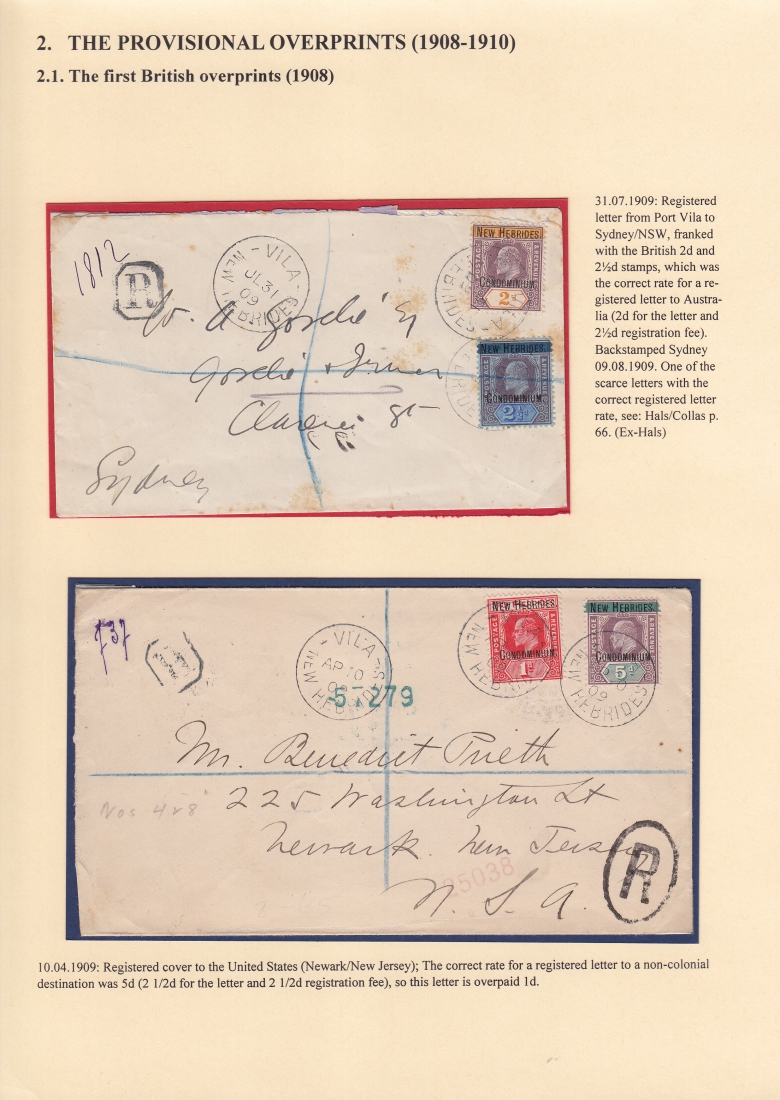 2. THE PROVISIONAL OVERPRINTS (1908-1910)
2.1. The first British overprints (1908)
31.07.1909: Registered
letter from Port Vila to
Sydney/NSW, franked
with the British 2d and
2½d stamps, which was
the correct rate for a re-
gistered letter to Austra-
lia (2d for the letter and
2½d registration fee).
Backstamped Sydney
09.08.1909. One of the
scarce letters with the
correct registered letter
rate, see: Hals/Collas p.
66. (Ex-Hals)
1812
R
VILA
JL 31
09
NEW HEBRIDES
NEW HEBRIDES.
POSTAGE & REVENUE
CONDOMINIUM.
2d
NEW HEBRIDES.
POSTAGE & REVENUE
CONDOMINIUM.
2½d
Clarence St
Sydney
737
R
VILA
AP 10
09
NEW HEBRIDES
57279
NEW HEBRIDES.
POSTAGE & REVENUE
CONDOMINIUM.
1d
NEW HEBRIDES.
POSTAGE & REVENUE
CONDOMINIUM.
5d
Mr. Benedict Prieth
Nos 4 & 8
225 Washington St
Newark. New Jersey
25038
U. S. A.
R
10.04.1909: Registered cover to the United States (Newark/New Jersey); The correct rate for a registered letter to a non-colonial
destination was 5d (2 1/2d for the letter and 2 1/2d registration fee), so this letter is overpaid 1d.